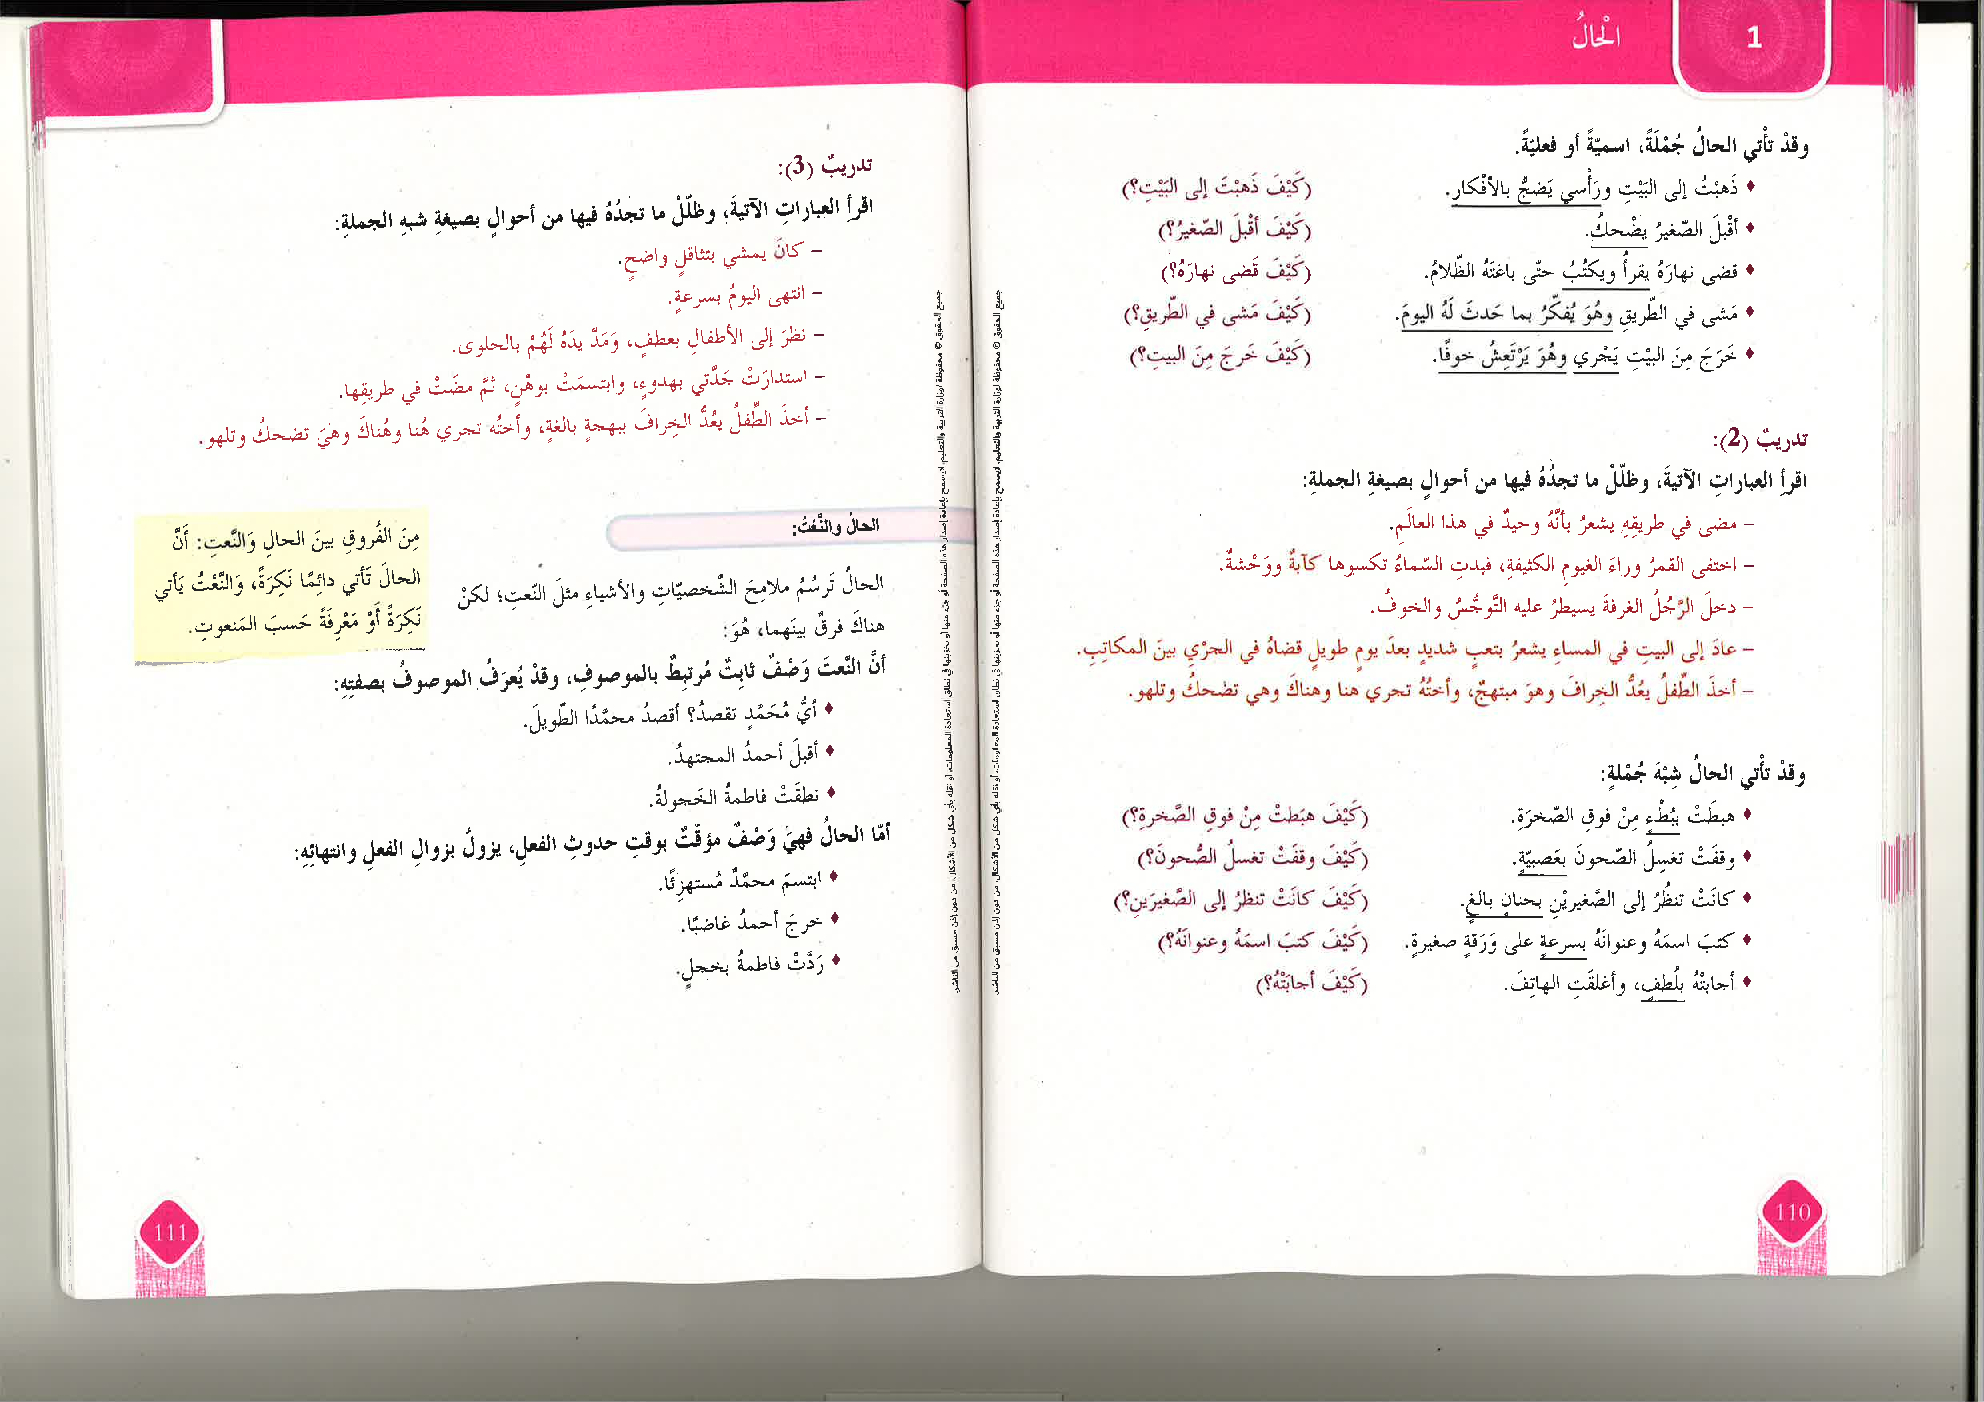 1
الْحالُ
وقدْ تأْتي الحالُ جُمْلَةً، اسميّةً أو فعليّةً.
♦ ذَهبْتُ إلى البَيْتِ ورَأْسي يَضجُّ بالأفْكارِ. (كَيْفَ ذَهبْتَ إلى البَيْتِ؟)
♦ أقْبلَ الصّغيرُ يضْحكُ. (كَيْفَ أقْبلَ الصّغيرُ؟)
♦ قضى نهارَهُ يقرأُ ويكتُبُ حتّى باغتَهُ الظّلامُ. (كَيْفَ قَضى نهارَهُ؟)
♦ مَشى في الطّريقِ وهُوَ يُفكّرُ بما حَدثَ لَهُ اليومَ. (كَيْفَ مَشى في الطّريقِ؟)
♦ خَرَجَ مِنَ البَيْتِ يَجْري وهُوَ يَرْتَعِشُ خوفًا. (كَيْفَ خَرجَ مِنَ البيتِ؟)
تدريبٌ (2):
اقرأِ العباراتِ الآتيةَ، وظلّلْ ما تجدُهُ فيها من أحوالٍ بصيغةِ الجملةِ:
– مضى في طريقِهِ يشعرُ بأنّهُ وحيدٌ في هذا العالَمِ.
– اختفى القمرُ وراءَ الغيومِ الكثيفةِ، فبدتِ السّماءُ تكسوها كآبةٌ ووَحْشةٌ.
– دخلَ الرَّجُلُ الغرفةَ يسيطرُ عليه التَّوجُّسُ والخوفُ.
– عادَ إلى البيتِ في المساءِ يشعرُ بتعبٍ شديدٍ بعدَ يومٍ طويلٍ قضاهُ في الجرْيِ بينَ المكاتِبِ.
– أخذَ الطِّفلُ يعُدُّ الخِرافَ وهوَ مبتهجٌ، وأختُهُ تجري هنا وهناكَ وهي تضحكُ وتلهو.
وقدْ تأْتي الحالُ شِبْهَ جُمْلةٍ:
♦ هبطَتْ بِبُطْءٍ مِنْ فوقِ الصّخرَةِ. (كَيْفَ هبَطتْ مِنْ فوقِ الصَّخرةِ؟)
♦ وقفَتْ تغسِلُ الصّحونَ بعَصبيّةٍ. (كَيْفَ وقفَتْ تغسلُ الصُّحونَ؟)
♦ كانَتْ تنظُرُ إلى الصَّغيريْنِ بحنانٍ بالغٍ. (كَيْفَ كانَتْ تنظرُ إلى الصَّغيرَينِ؟)
♦ كتبَ اسمَهُ وعنوانَهُ بسرعةٍ على وَرَقةٍ صغيرةٍ. (كَيْفَ كتبَ اسمَهُ وعنوانَهُ؟)
♦ أجابتْهُ بلُطفٍ، وأغلقَتِ الهاتِفَ. (كَيْفَ أجابَتْهُ؟)
110
تدريبٌ (3):
اقرأِ العباراتِ الآتيةَ، وظلّلْ ما تجدُهُ فيها من أحوالٍ بصيغةِ شبهِ الجملةِ:
– كانَ يمشي بتثاقلٍ واضحٍ.
– انتهى اليومُ بسرعةٍ.
– نظرَ إلى الأطفالِ بعطفٍ، وَمَدَّ يدَهُ لَهُمْ بالحلوى.
– استدارَتْ جَدَّتي بهدوءٍ، وابتسمَتْ بوهْنٍ، ثمَّ مضَتْ في طريقِها.
– أخذَ الطِّفلُ يعُدُّ الخِرافَ ببهجةٍ بالغةٍ، وأختُه تجري هُنا وهُناكَ وهيَ تضحكُ وتلهو.
الحالُ والنَّعْتُ:
الحالُ تَرسُمُ ملامِحَ الشَّخصيّاتِ والأشياءِ مثلَ النّعتِ؛ لكنْ
هناكَ فرقٌ بينَهما، هُوَ:
أنَّ النَّعتَ وَصْفٌ ثابِتٌ مُرتبِطٌ بالموصوفِ، وقدْ يُعرَفُ الموصوفُ بصفتِهِ:
♦ أيُّ مُحَمَّدٍ تقصدُ؟ أقصدُ محمَّدًا الطّويلَ.
♦ أقبلَ أحمدُ المجتهدُ.
♦ نطقَتْ فاطمةُ الخَجولةُ.
أمّا الحالُ فهيَ وَصْفٌ مؤقّتٌ بوقتِ حدوثِ الفعلِ، يزولُ بزوالِ الفعلِ وانتهائِهِ:
♦ ابتسمَ محمَّدٌ مُستهزِئًا.
♦ خرجَ أحمدُ غاضبًا.
♦ رَدَّتْ فاطمةُ بخجلٍ.
مِنَ الفُروقِ بينَ الحالِ وَالنَّعتِ: أَنَّ
الحالَ تَأتي دائِمًا نَكِرَةً، وَالنَّعْتُ يَأتي
نَكِرَةً أَوْ مَعْرِفَةً حَسبَ المَنعوتِ.
111